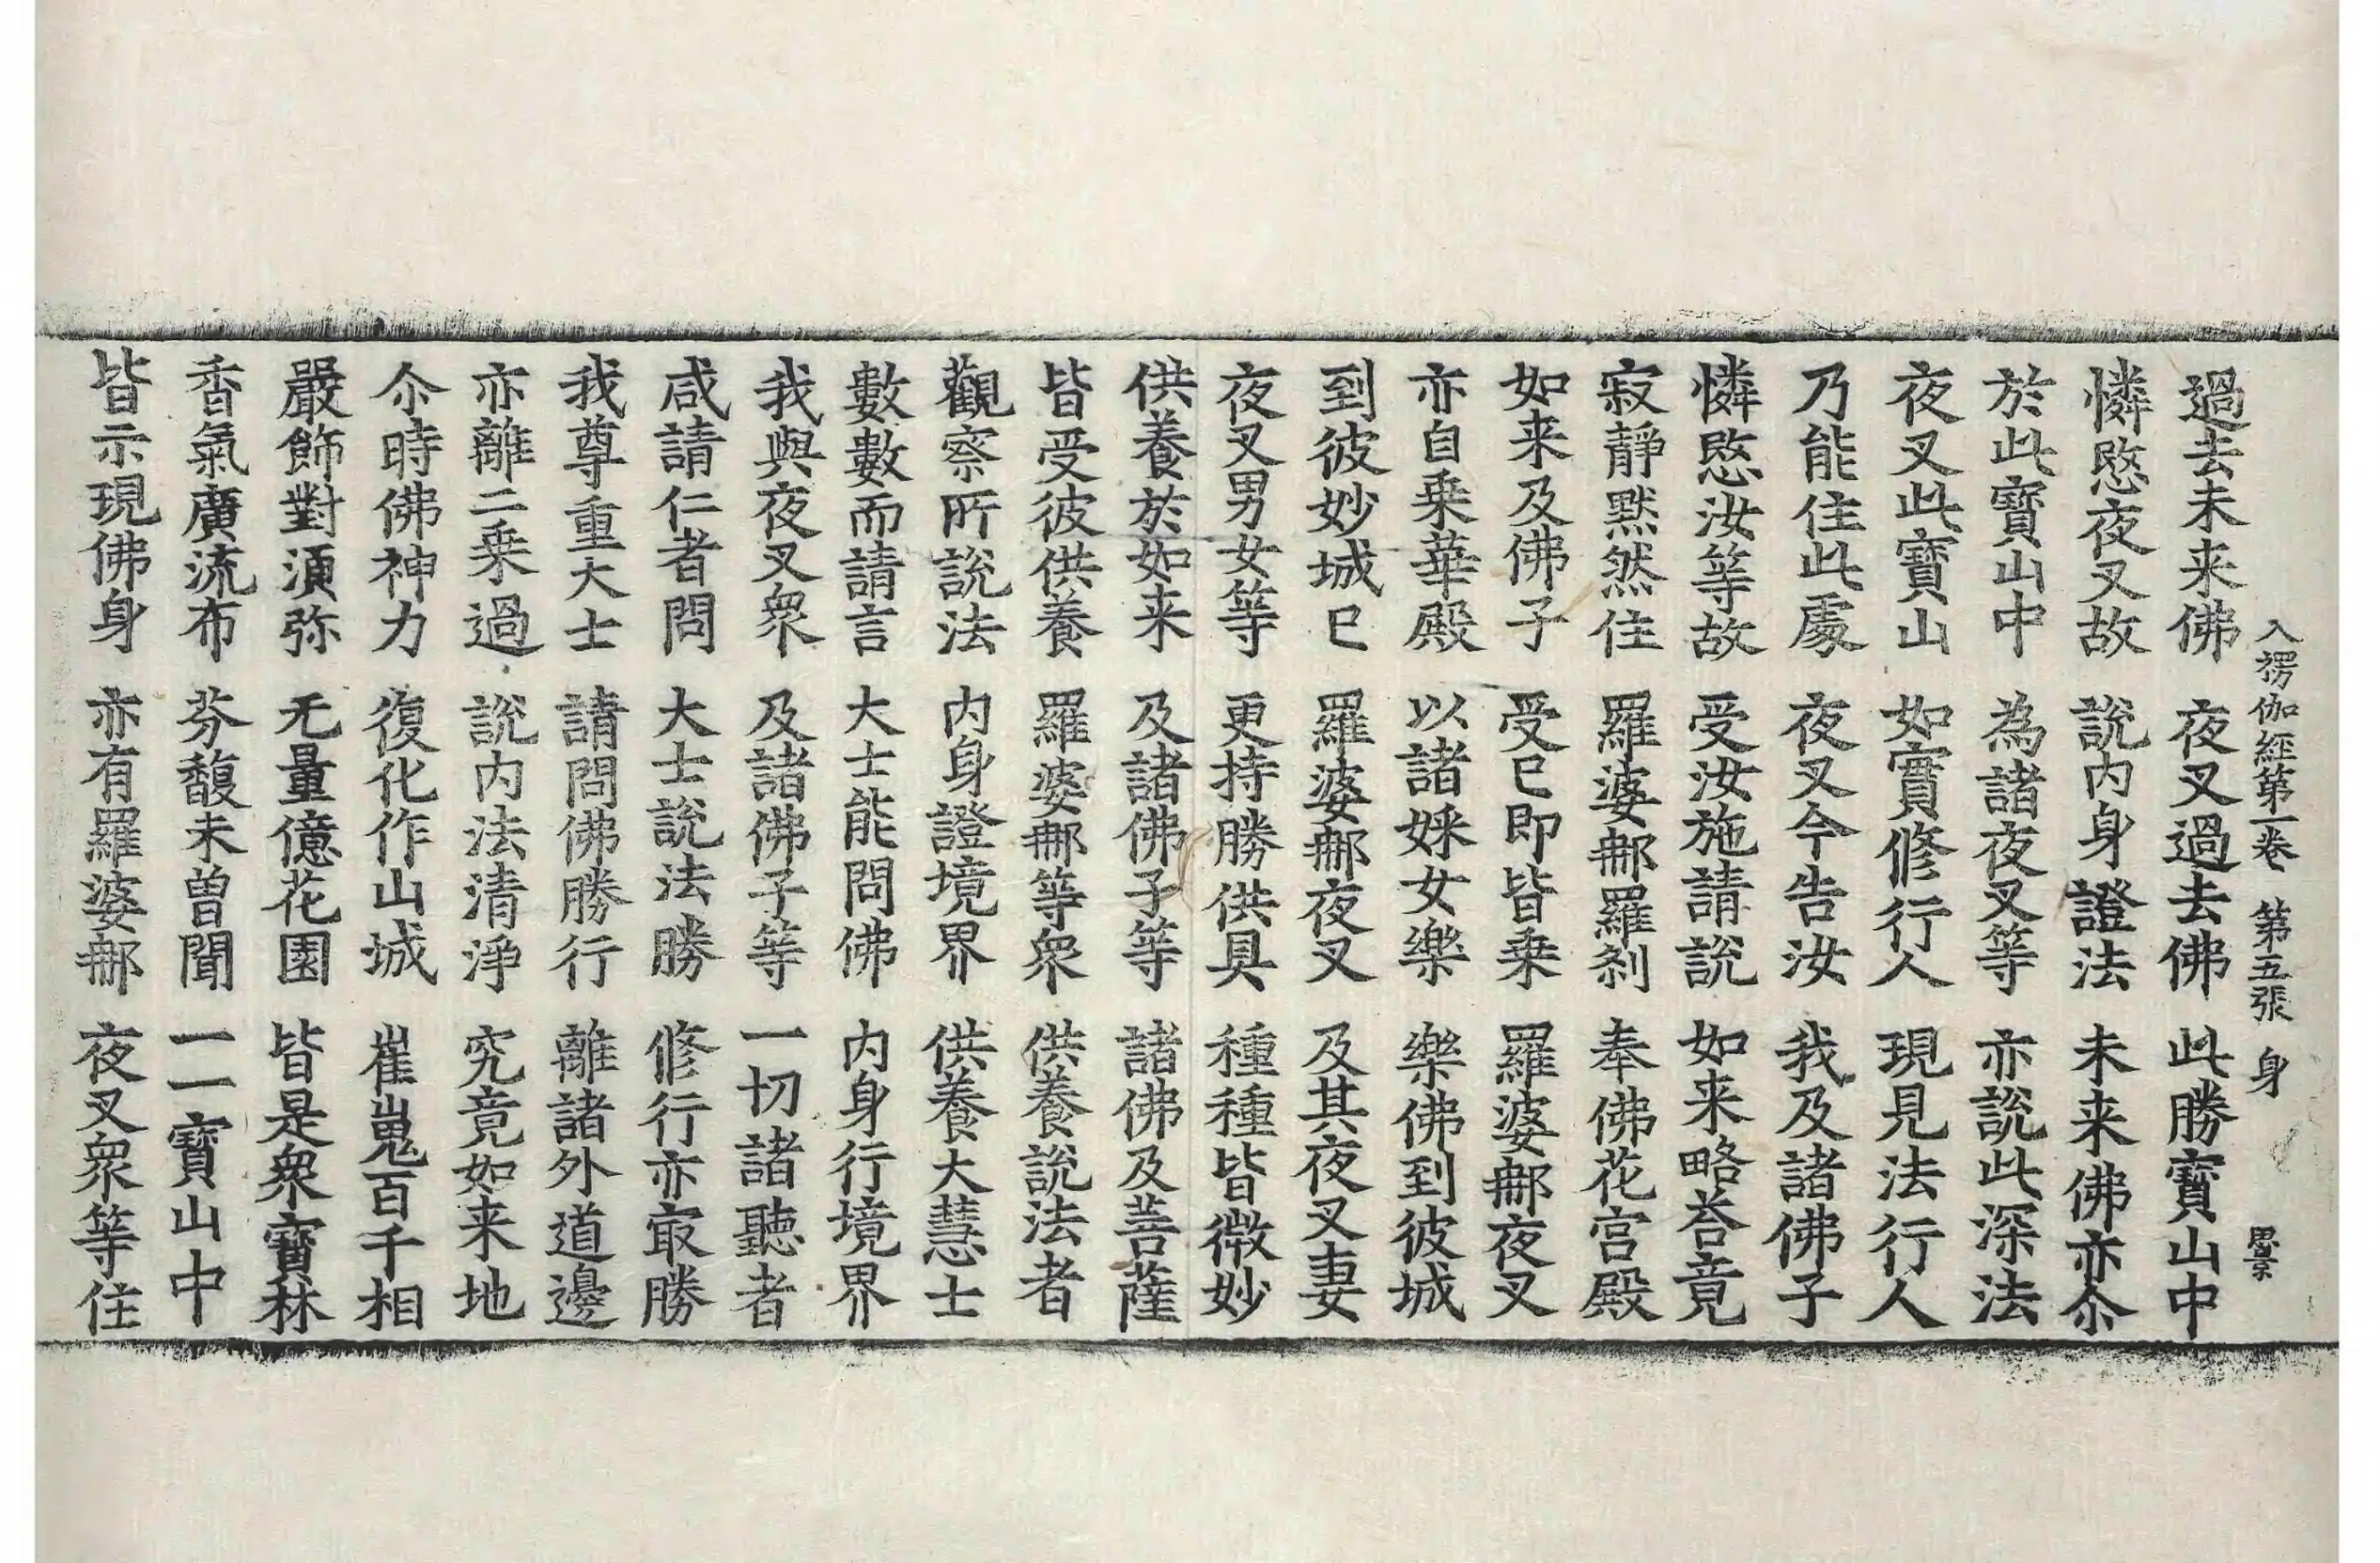 入楞伽經第一卷 第五張 身
過去未来佛 夜叉過去佛 此勝寶山中
憐愍夜叉故 說內身證法 未来佛亦尒
於此寶山中 為諸夜叉等 亦說此深法
夜叉此寶山 如實修行人 現見法行人
乃能住此處 夜叉今告汝 我及諸佛子
憐愍汝等故 受汝施請說 如来略荅竟
寂靜默然住 羅婆𨚗羅剎 奉佛花宮殿
如来及佛子 受已即皆乗 羅婆𨚗夜叉
亦自乗華殿 以諸婇女樂 樂佛到彼城
到彼妙城已 羅婆𨚗夜叉 及其夜叉妻
夜叉男女等 更持勝供具 種種皆微妙
供養於如来 及諸佛子等 諸佛及菩薩
皆受彼供養 羅婆𨚗等衆 供養說法者
觀察所說法 內身證境界 供養大慧士
數數而請言 大士能問佛 內身行境界
我與夜叉衆 及諸佛子等 一切諸聽者
咸請仁者問 大士說法勝 修行亦㝡勝
我尊重大士 請問佛勝行 離諸外道邊
亦離二乗過 說內法清淨 究竟如来地
尒時佛神力 復化作山城 崔嵬百千相
嚴飾對須弥 无量億花園 皆是衆寶林
香氣廣流布 芬馥未曽聞 一一寶山中
皆示現佛身 亦有羅婆𨚗 夜叉衆等住